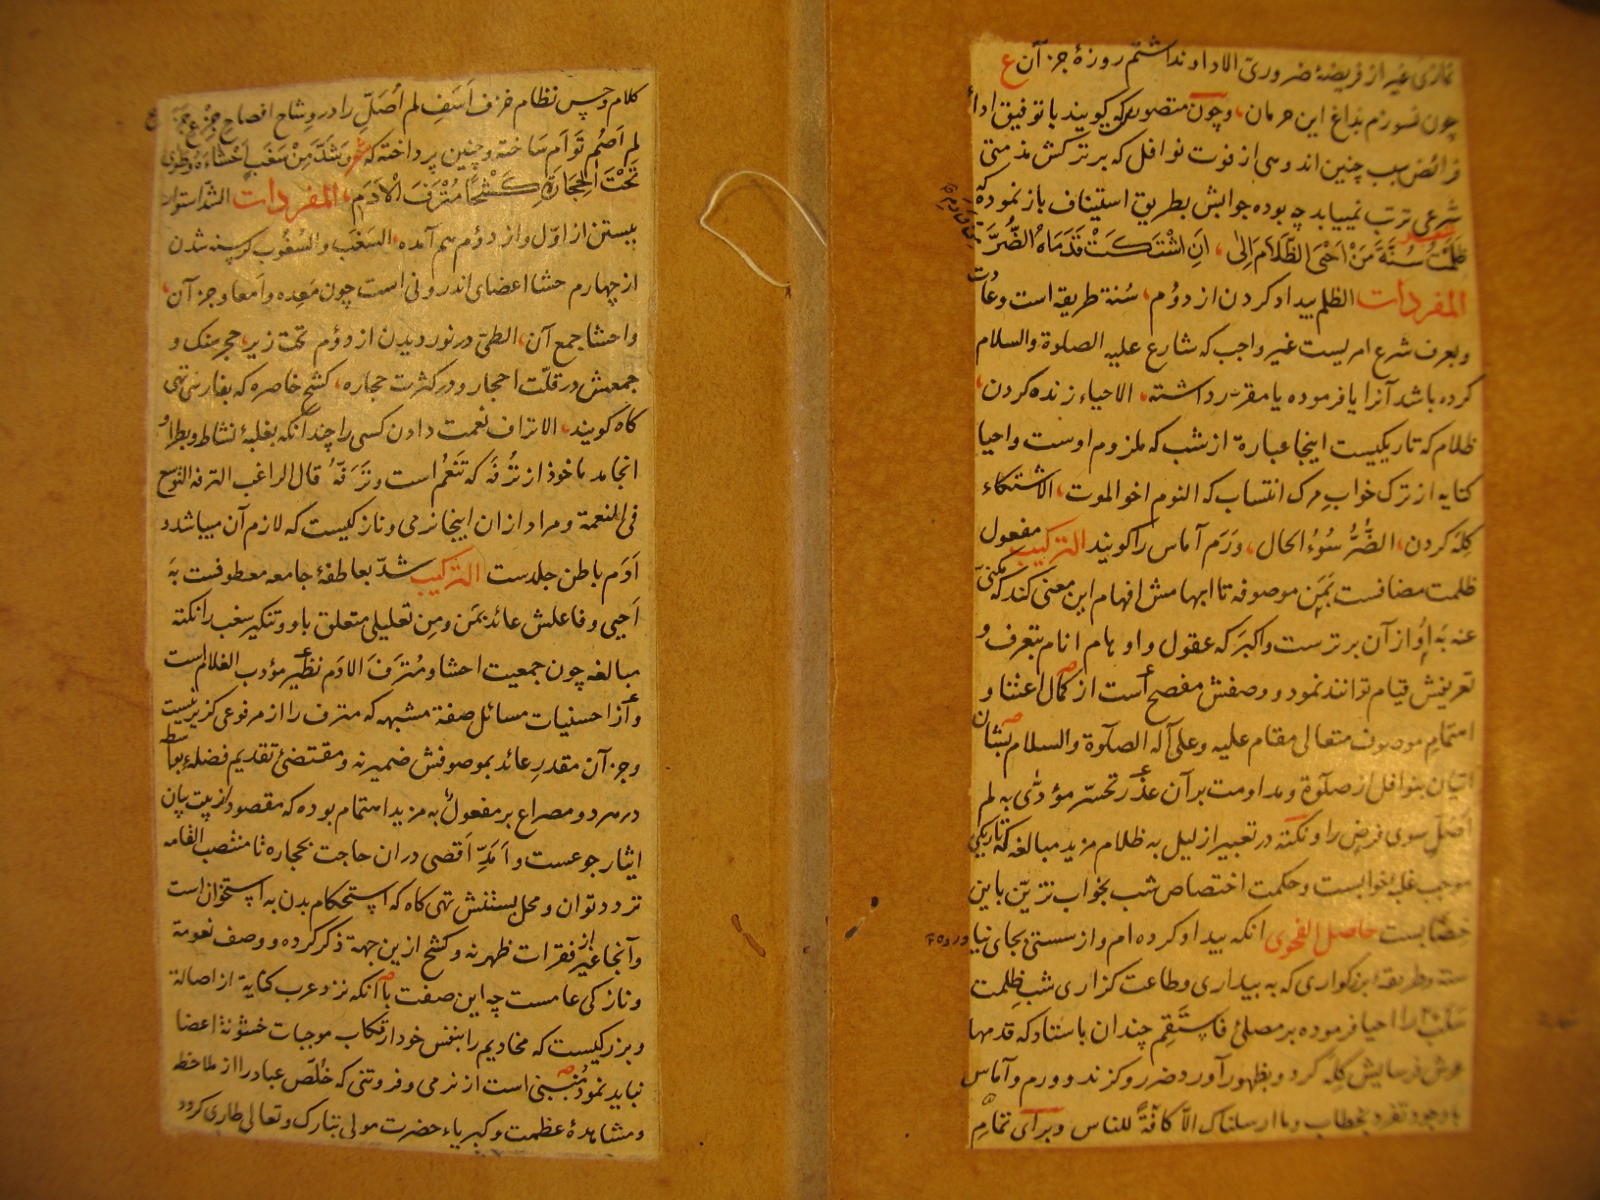 نمازی غیر از فریضهٔ ضروری الادا و نداشتم روزهٔ جز آن ع
چون نسوزم بداغ این حرمان، وچون متصور که کویند باتوفیق اداء
فرائض سبب چنین اندوهی از فوت نوافل که بر ترکش مذمتی
شرعی ترتب نمییابد چه بوده جوابش بطریق استیناف باز نموده که
ظَلَمْتُ سُنَّةَ مَنْ اَحْیَی الظَّلَامَ اِلٰی، اَنِ اشْتَکَتْ قَدَمَاهُ الضُّرَّ
المفردات الظلم بیداد کردن از دوُم، سُنة طریقه است وعادت
وبعرف شرع امریست غیر واجب که شارع علیه الصلوة والسلام
کرده باشد آنرا یا فرموده یا مقرر داشته، الاحیاء زنده کردن،
ظلام که تاریکیست اینجا عبارة از شب که ملزوم اوست واحیا
کنایه از ترک خواب مرک انتساب که النوم اخو الموت، الاشتکاء
کِله کردن، الضُّرُّ سُوءُ الحال، وَرَم آماس را کویند الترکیب مفعول
ظلمت مضافست بمَن موصوفه تا ابهامش افهام این معنی کند که مکنّی
عنه به او از آن برترست واکبر که عقول واوهام انام بتعرف و
تعریفش قیام توانند نمود ووصفش مفصح است از کمال اعتنا و
اهتمام موصوف متعالی مقام علیه وعلی آله الصلوة والسلام بشان
اتیان بنوافل از صلوة ومداومت بر آن عذر تحسر مؤدّی به لم
اُصَلِّ سوی فرض را ونکته در تعبیر از لیل به ظلام مزید مبالغه که تاریکی
موجب غلبهٔ خوابست وحکمت اختصاص شب بخواب تزیّن باین
خضابست حاصل الفحوی انکه بیداد کرده ام واز سستی بجای نیاورده
سنة وطریقهٔ بزرکواری که به بیداری وطاعت کزاری شب ظلمت
سلب را احیا فرموده بر مصلّیٰ فاستقم چندان باستاد که قدمها
عرش فرسایش کِله کرد وبظهور آورد ضرر وکزند وورم وآماس
باوجود تفرد بخطاب وما ارسلناک الّا کافّةً للناس وبرای تمام
کلام وحسن نظام خزف اَسَفِ لم اُصَلِّ را در وشاح افصاح جزع جز
لم اَصُم تَوأَم ساخته وچنین پرداخته که شعر وَشَدَّ مِنْ سَغَبٍ اَحْشَاءَهُ وَطَوٰی
تَحْتَ الْحِجَارَةِ کَشْحًا مُتْرَفَ الْاَدَمِ، المفردات الشد استوار
ببستن از اوّل واز دوُم هم آمده، السَغَب والسُغُوب کرسنه شدن
از چهارم حشا اعضای اندرونی است چون مَعِده واَمعا وجز آن،
واحشا جمع آن، الطیّ درنوردیدن از دوُم تحت زیر، حجر سنک و
جمعش در قلّت احجار ودر کثرت حجاره، کشح خاصره که بفارسی تهی
کاه کویند، الاتراف نعمت دادن کسی را چندانکه بغلبهٔ نشاط وبطر او
انجامد ماخوذ از تُرْفَه که تَنَعُّم است وتَرَفُّه قال الراغب الترفه التوسع
فی النعمة ومراد از ان اینجا نرمی ونازکیست که لازم آن میباشد و
اَدَم باطن جلدست الترکیب شدّ بعاطفهٔ جامعه معطوفست به
اَحیی وفاعلش عائد بمَن ومِن تعلیلی متعلق باو وتنکیر سغب را نکته
مبالغه چون جمعیت احشا ومُترَفَ الادَم نظیر مؤدب الغلام است
وآن از حسنیات مسائل صفة مشبهه که مترف را از مرفوعی کزیر نیست
وجز آن مقدر عائد بموصوفش ضمیر نه ومقتضئ تقدیم فضله بواسطه
در هر دو مصراع بر مفعول به مزید اهتمام بوده که مقصود از بیت بیان
ایثار جوعست واَمَدِّ اَقصی در ان حاجت بحجاره تا منتصب القامه
تردد توان ومحل بستنش تهی کاه که استحکام بدن به استخوان است
وآنجا غیر از فقرات ظهر نه وکشح ازین جهة ذکر کرده ووصف نعومة
ونازکی عامست چه این صفت باآنکه نزد عرب کنایة از اصالة
وبزرکیست که مخادیم را بنفس خود ارتکاب موجبات خشونهٔ اعضا
نباید نمود مُنبئی است از نرمی وفروتنی که خُلَّص عباد را از ملاحظه
ومشاهدهٔ عظمت وکبریاء حضرت مولی تبارک وتعالی طاری کردد